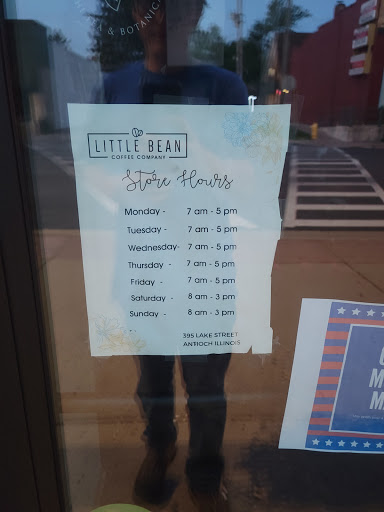 & BOTANIC
LITTLE BEAN
COFFEE COMPANY
Store Hours
Monday - 7 am - 5 pm
Tuesday - 7 am - 5 pm
Wednesday- 7 am - 5 pm
Thursday - 7 am - 5 pm
Friday - 7 am - 5 pm
Saturday - 8 am - 3 pm
Sunday - 8 am - 3 pm
395 LAKE STREET
ANTIOCH ILLINOIS